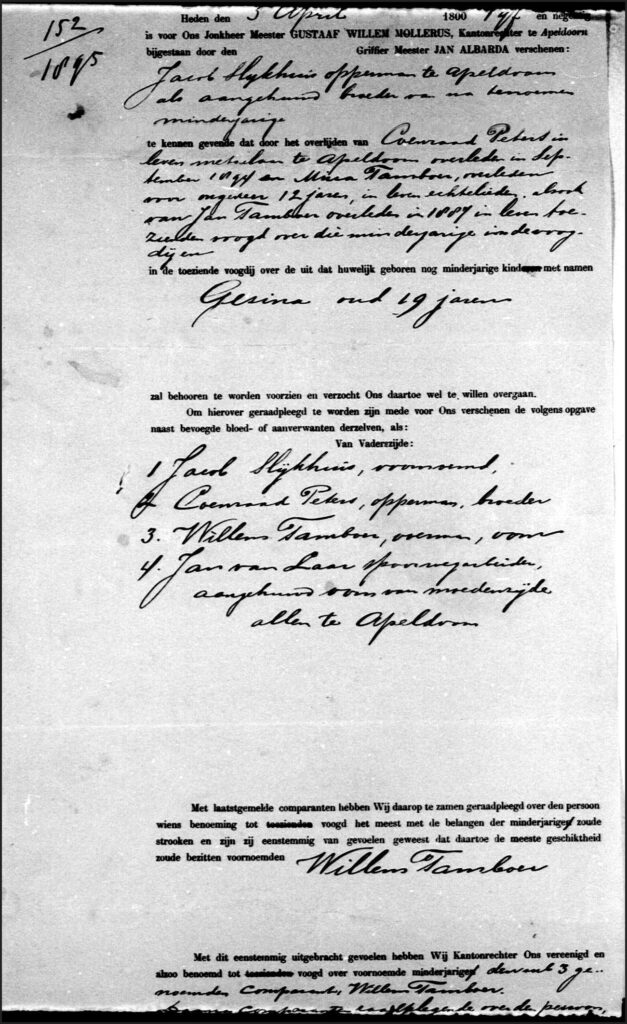 152
1895
Heden den 5 April 1800 vyf en negentig
is voor Ons Jonkheer Meester GUSTAAF WILLEM MOLLERUS, Kantonrechter te Apeldoorn
bijgestaan door den Griffier Meester JAN ALBARDA verschenen:
Jacob Slykhuis opperman te Apeldoorn
als aangehuwd broeder van na te noemen
minderjarige
te kennen gevende dat door het overlijden van Coenraad Peters in
leven metselaar te Apeldoorn overleden in Sep-
tember 1894 en Tamboer, overleden
voor ongeveer 12 jaren, in leven echtelieden alsook
van Jan Tamboer overleden in 1887 in leven toe-
zienden voogd over die minderjarige in de voog-
dij en
in de toeziende voogdij over de uit dat huwelijk geboren nog minderjarige kinderen met namen
Gesina oud 19 jaren
zal behooren te worden voorzien en verzocht Ons daartoe wel te willen overgaan.
Om hierover geraadpleegd te worden zijn mede voor Ons verschenen de volgens opgave
naast bevoegde bloed- of aanverwanten derzelven, als:
Van Vaderszijde:
1 Jacob Slijkhuis, voornoemd,
2 Coenraad Peters, opperman, broeder
3. Willem Tamboer, voerman, oom
4. Jan van Laar spoorwegarbeider,
aangehuwd oom van moederzijde
allen te Apeldoorn
Met laatstgemelde comparanten hebben Wij daarop te zamen geraadpleegd over den persoon
wiens benoeming tot toezienden voogd het meest met de belangen der minderjarige zoude
strooken en zijn zij eenstemmig van gevoelen geweest dat daartoe de meeste geschiktheid
zoude bezitten voornoemden Willem Tamboer
Met dit eenstemmig uitgebracht gevoelen hebben Wij Kantonrechter Ons vereenigd en
alzoo benoemd tot toezienden voogd over voornoemde minderjarige den sub 3 ge-
noemden comparant, Willem Tamboer.
raadplegende over den persoon,